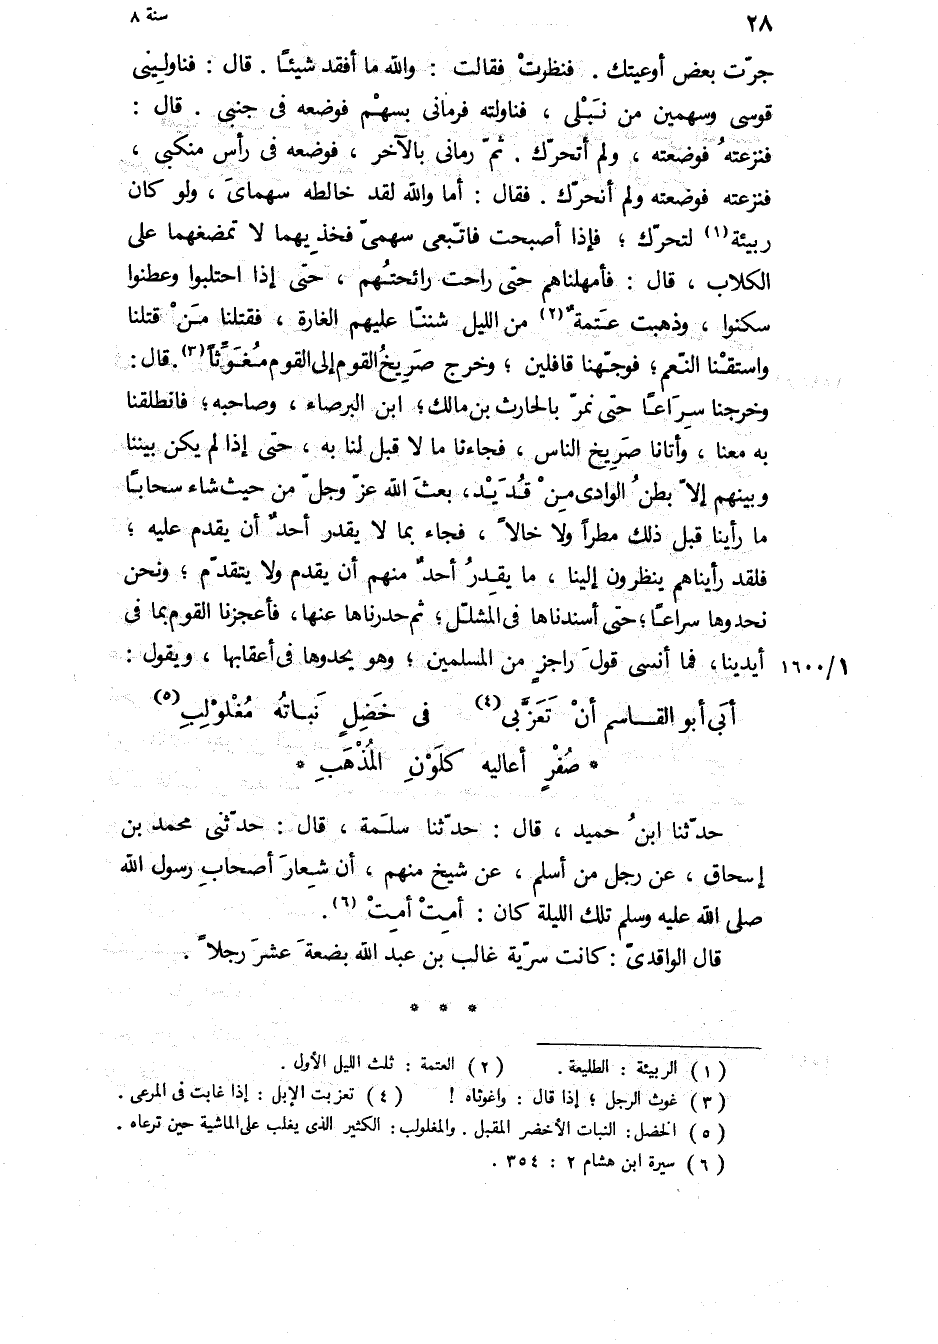 ٢٨ سنة ٨
جرّت بعض أوعيتك . فنظرتْ فقالت : والله ما أفقد شيئًا . قال : فناولِينى
قوسى وسهمين من نَبْلى ، فناولته فرمانى بسهْم فوضعه فى جنبى . قال :
فنزعتهُ فوضعته ، ولم أتحرّك . ثمّ رمانى بالآخر ، فوضعه فى رأس منكبى ،
فنزعته فوضعته ولم أتحرّك . فقال : أما والله لقد خالطه سهماىَ ، ولو كان
ربيئة(١) لتحرّك ؛ فإذا أصبحت فاتّبعى سهمىّ فخذيهما لا تمضغهما على
الكلاب ، قال : فأمهلناهم حتّى راحت رائحتُهم ، حتّى إذا احتلبوا وعطنوا
سكنوا ، وذهبت عَتمةٌ(٢) من الليل شننّا عليهم الغارة ، فقتلنا مَنْ قتلنا
واستقْنا النّعم ؛ فوجّهنا قافلين ؛ وخرج صَرِيخُ القوم إلى القوم مُغَوِّثًا(٣) . قال :
وخرجنا سِرَاعًا حتّى نمرّ بالحارث بن مالك ؛ ابن البرصاء ، وصاحبه ؛ فانطلقنا
به معنا ، وأتانا صَرِيخ الناس ، فجاءنا ما لا قبل لنا به ، حتّى إذا لم يكن بيننا
وبينهم إلاّ بطنُ الوادى مِنْ قُدَيْد ، بعثَ الله عزّ وجلّ من حيث شاء سحابًا
ما رأينا قبل ذلك مطراً ولا خالاً ، فجاء بما لا يقدر أحدٌ أن يقدم عليه ؛
فلقد رأيناهم ينظرون إلينا ، ما يقدِرُ أحدٌ منهم أن يقدم ولا يتقدّم ؛ ونحن
نحدوها سراعًا ؛ حتى أسندناها فى المشلّل ؛ ثم حدرناها عنها ، فأعجزنا القوم بما فى
١٦٠٠/١ أيدينا ، فما أنسى قولَ راجزٍ من المسلمين ؛ وهو يحدوها فى أعقابها ، ويقول :
أَبَى أبو القــاسم أنْ تَعَزَّبى(٤) فى خَضَلٍ نَباتُه مُغْلوْلِبِ(٥)
* صُفْرٍ أعاليه كلَوْنِ المُذْهَبِ *
حدّثنا ابنُ حميد ، قال : حدّثنا سلَمة ، قال : حدّثنى محمد بن
إسحاق ، عن رجل من أسلم ، عن شيخ منهم ، أن شِعارَ أصحابِ رسول الله
صلى الله عليه وسلم تلك الليلة كان : أمِتْ أمِتْ(٦) .
قال الواقدىّ : كانت سرّية غالب بن عبد الله بضعةَ عشرَ رجلاً .
* * *
(١) الربيئة : الطليعة . (٢) العتمة : ثلث الليل الأول .
(٣) غوث الرجل ؛ إذا قال : واغوثاه ! (٤) تعزبت الإبل : إذا غابت فى المرعى .
(٥) الخضل : النبات الأخضر المقبل . والمغلولب : الكثير الذى يغلب على الماشية حين ترعاه .
(٦) سيرة ابن هشام ٢ : ٣٥٤ .